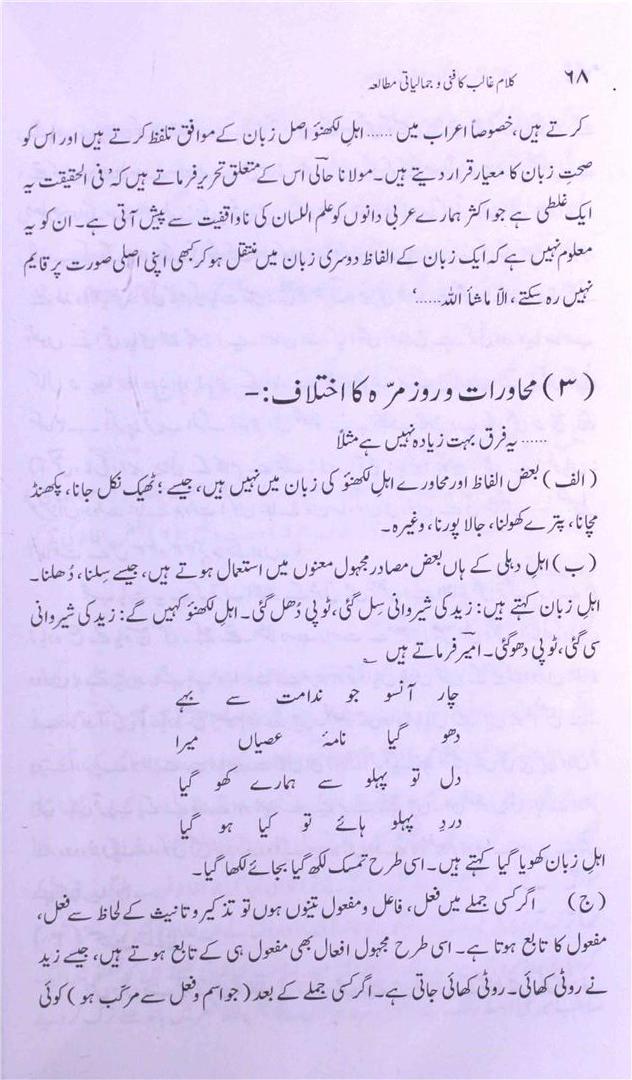 ۶۸ کلام غالب کا فنی و جمالیاتی مطالعہ
کرتے ہیں، خصوصاً اعراب میں ...... اہلِ لکھنؤ اصل زبان کے موافق تلفظ کرتے ہیں اور اس کو
صحتِ زبان کا معیار قرار دیتے ہیں۔ مولانا حالیؔ اس کے متعلق تحریر فرماتے ہیں کہ ’فی الحقیقت یہ
ایک غلطی ہے جو اکثر ہمارے عربی دانوں کو علم اللسان کی ناواقفیت سے پیش آتی ہے۔ ان کو یہ
معلوم نہیں ہے کہ ایک زبان کے الفاظ دوسری زبان میں منتقل ہو کر کبھی اپنی اصلی صورت پر قایم
نہیں رہ سکتے، الّا ماشأ اللہ.....‘
(۳) محاورات و روز مرّہ کا اختلاف:-
...... یہ فرق بہت زیادہ نہیں ہے مثلاً
(الف) بعض الفاظ اور محاورے اہلِ لکھنؤ کی زبان میں نہیں ہیں، جیسے؛ ٹھیک نکل جانا، پکھنڈ
مچانا، پترے کھولنا، جالا پورنا، وغیرہ۔
(ب) اہلِ دہلی کے ہاں بعض مصادر مجہول معنوں میں استعمال ہوتے ہیں، جیسے سِلنا، دُھلنا۔
اہلِ زبان کہتے ہیں: زید کی شیروانی سِل گئی، ٹوپی دُھل گئی۔ اہلِ لکھنؤ کہیں گے: زید کی شیروانی
سی گئی، ٹوپی دھو گئی۔ امیرؔ فرماتے ہیں ؎
چار آنسو جو ندامت سے بہے
دھو گیا نامۂ عصیاں میرا
دل تو پہلو سے ہمارے کھو گیا
دردِ پہلو ہائے تو کیا ہو گیا
اہلِ زبان کھویا گیا کہتے ہیں۔ اسی طرح تمسک لکھ گیا بجائے لکھا گیا۔
(ج) اگر کسی جملے میں فعل، فاعل و مفعول تینوں ہوں تو تذکیر و تانیث کے لحاظ سے فعل،
مفعول کا تابع ہوتا ہے۔ اسی طرح مجہول افعال بھی مفعول ہی کے تابع ہوتے ہیں، جیسے زید
نے روٹی کھائی۔ روٹی کھائی جاتی ہے۔ اگر کسی جملے کے بعد (جو اسم و فعل سے مرکب ہو) کوئی